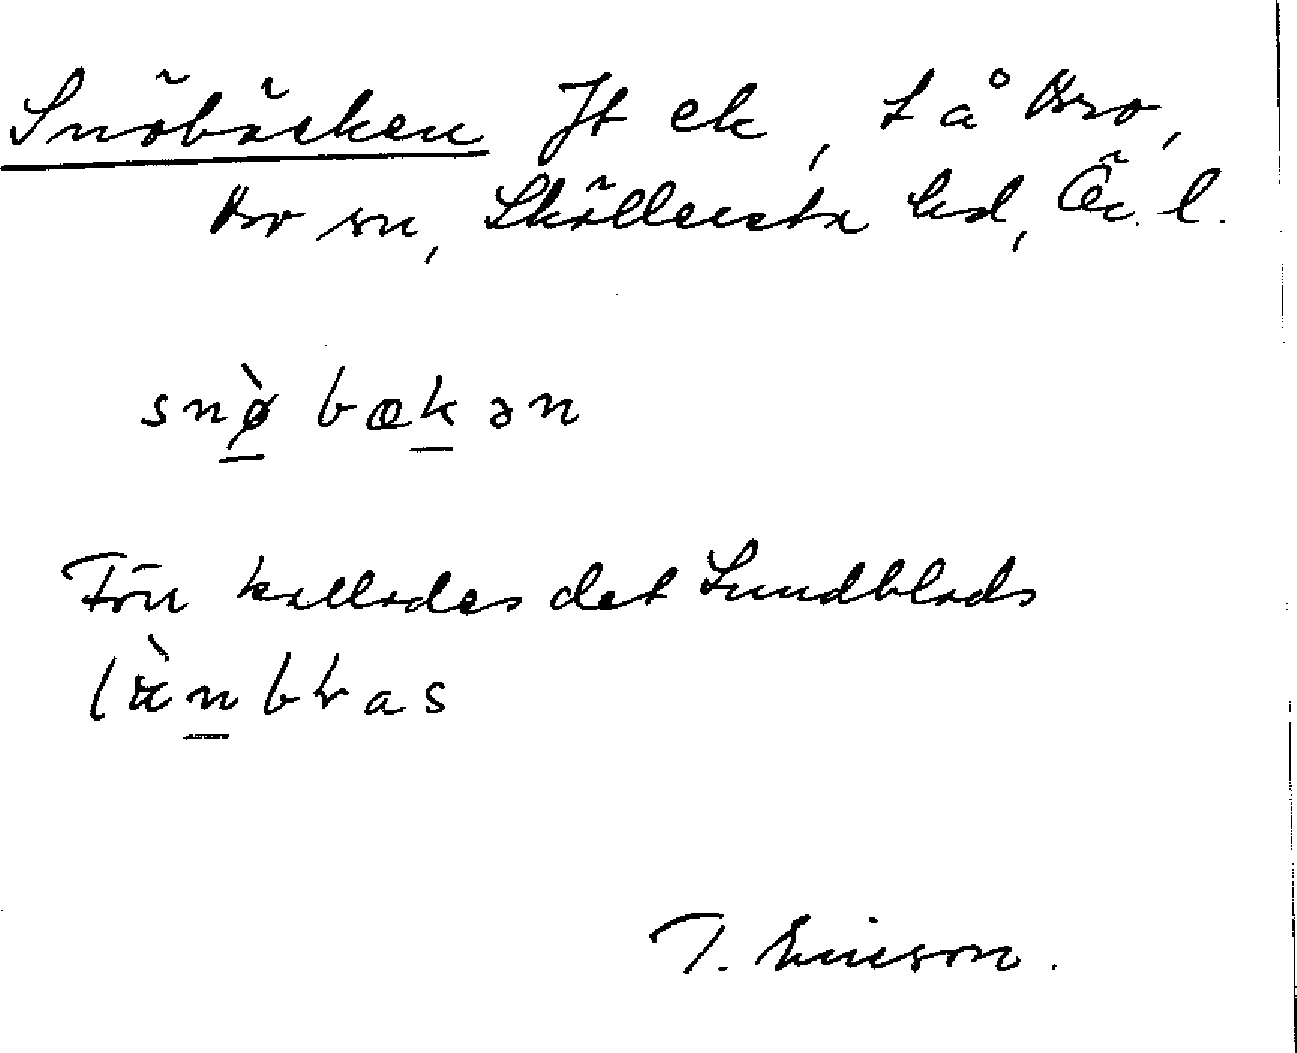 Snöbäcken Jt ek, t å Bro,
Bro sn, Sköllersta hd, Ör. l.
snø̀bækən
Förr kallades det Lundblads
lànbkas
T. Ericson.